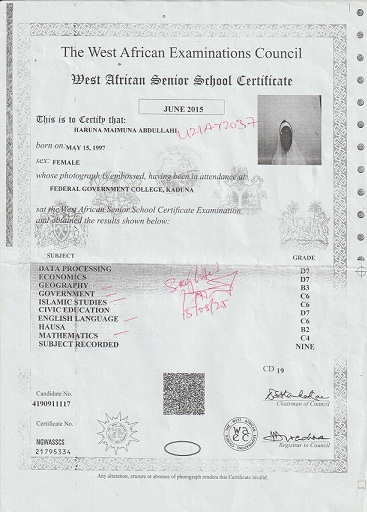 The West African Examinations Council
West African Senior School Certificate
JUNE 2015
This is to Certify that:
HARUNA MAIMUNA ABDULLAHI
U21AY2037
born on MAY 15, 1997
sex: FEMALE
whose photograph is embossed, having been in attendance at
FEDERAL GOVERNMENT COLLEGE, KADUNA
sat the West African Senior School Certificate Examination
and obtained the results shown below:
SUBJECT GRADE
DATA PROCESSING D7
ECONOMICS D7
GEOGRAPHY B3
GOVERNMENT C6
ISLAMIC STUDIES C6
CIVIC EDUCATION D7
ENGLISH LANGUAGE C6
HAUSA B2
MATHEMATICS C4
SUBJECT RECORDED NINE
CD 19
Candidate No.
4190911117
Chairman of Council
Certificate No.
NGWASSCS
21795334
waec
Registrar to Council
Any alteration, erasure or absence of photograph renders this Certificate invalid.